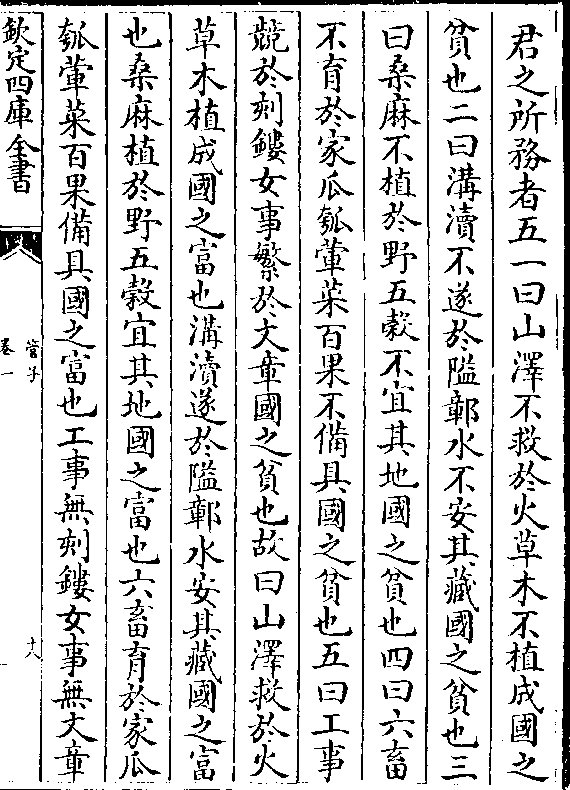 君之所務者五一曰山澤不救於火草木不植成國之
貧也二曰溝瀆不遂於隘鄣水不安其藏國之貧也三
曰桑麻不植於野五糓不宜其地國之貧也四曰六畜
不育於家瓜瓠葷菜百果不備具國之貧也五曰工事
競於刻鏤女事繁於文章國之貧也故曰山澤救於火
草木植成國之富也溝瀆遂於隘鄣水安其藏國之富
也桑麻植於野五穀宜其地國之富也六畜育於家瓜
瓠葷菜百果備具國之富也工事無刻鏤女事無文章
欽定四庫全書
管子
卷一
十八